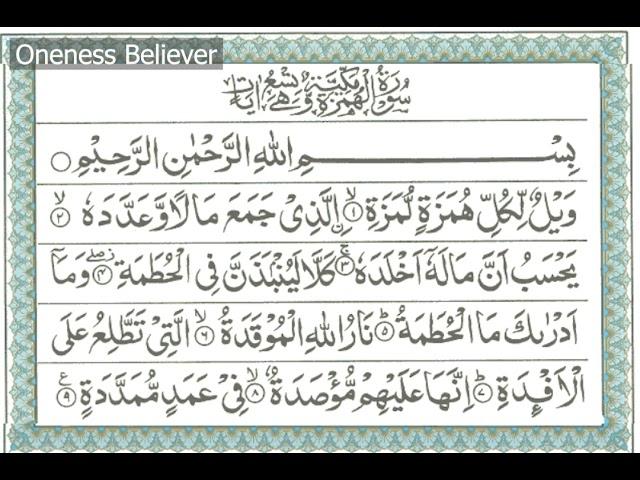 Oneness Believer
سُوْرَةُ الْهُمَزَةِ مَكِّيَّةٌ وَّهِيَ تِسْعُ اٰيَاتٍ
بِسْمِ اللهِ الرَّحْمٰنِ الرَّحِيْمِ ○
وَيْلٌ لِّكُلِّ هُمَزَةٍ لُّمَزَةِ ۙ﴿۱﴾ اِۨلَّذِیْ جَمَعَ مَا لًا وَّعَدَّدَهٗ ۙ﴿۲﴾
يَحْسَبُ اَنَّ مَالَهٗۤ اَخْلَدَهٗ ۚ﴿۳﴾ كَلَّا لَيُنْۢبَذَنَّ فِی الْحُطَمَةِ ﴿۴﴾ وَمَاۤ
اَدْرٰىكَ مَا الْحُطَمَةُ ؕ﴿۵﴾ نَارُ اللهِ الْمُوْقَدَةُ ۙ﴿۶﴾ الَّتِیْ تَطَّلِعُ عَلَى
الْاَفْـِٕدَةِ ؕ﴿۷﴾ اِنَّهَا عَلَيْهِمْ مُّؤْصَدَةٌ ۙ﴿۸﴾ فِیْ عَمَدٍ مُّمَدَّدَةٍ ﴿۹﴾ ع